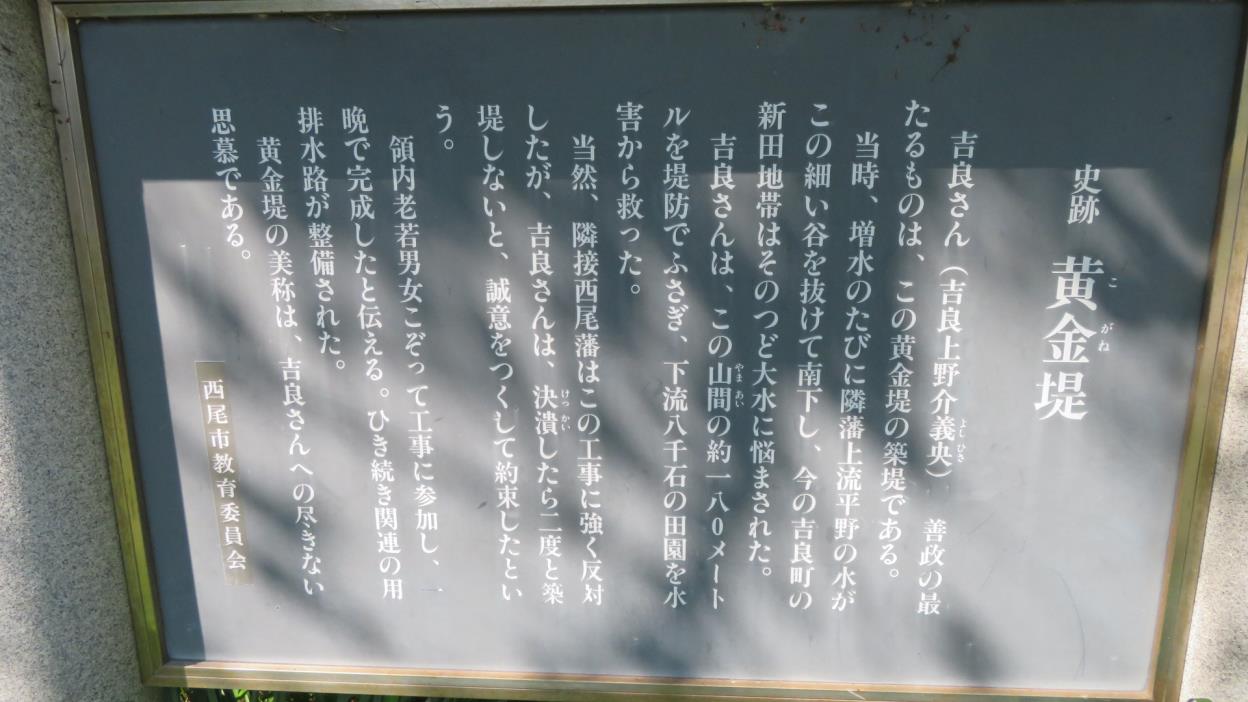 史跡 黄金堤
こがね
吉良さん（吉良上野介義央） 善政の最
よしひさ
たるものは、この黄金堤の築堤である。
当時、増水のたびに隣藩上流平野の水が
この細い谷を抜けて南下し、今の吉良町の
新田地帯はそのつど大水に悩まされた。
吉良さんは、この山間の約一八０メート
やまあい
ルを堤防でふさぎ、下流八千石の田園を水
害から救った。
当然、隣接西尾藩はこの工事に強く反対
したが、吉良さんは、決潰したら二度と築
けっかい
堤しないと、誠意をつくして約束したとい
う。
領内老若男女こぞって工事に参加し、一
晩で完成したと伝える。ひき続き関連の用
排水路が整備された。
黄金堤の美称は、吉良さんへの尽きない
思慕である。
西尾市教育委員会